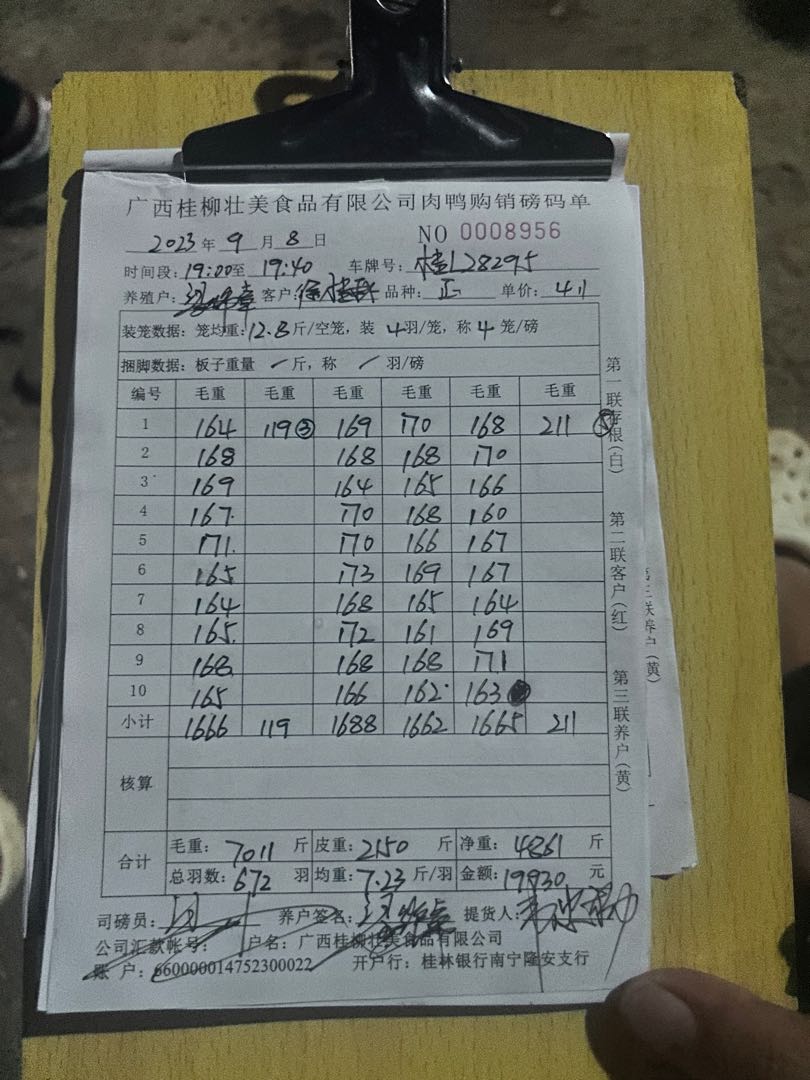 广西桂柳壮美食品有限公司肉鸭购销磅码单
2023年 9 月 8 日 NO 0008956
时间段:19:00至 19:40 车牌号:桂L28295
养殖户: 客户: 品种: 正 单价: 4.1
装笼数据: 笼均重:12.8斤/空笼, 装 4羽/笼, 称 4 笼/磅
捆脚数据: 板子重量 / 斤, 称 / 羽/磅
编号 毛重 毛重 毛重 毛重 毛重 毛重
1 164 119③ 169 170 168 211 ⑤
2 168 168 168 170
3 169 164 165 166
4 167 170 168 160
5 171 170 166 167
6 165 173 169 167
7 164 168 165 164
8 165 172 161 169
9 168 168 168 171
10 165 166 162 163
小计 1666 119 1688 1662 1665 211
核算
合计 毛重: 7011 斤 皮重: 2150 斤 净重: 4861 斤
总羽数: 672 羽 均重: 7.23 斤/羽 金额: 19930 元
司磅员: 养户签名: 提货人:
公司汇款帐号: 户名: 广西桂柳壮美食品有限公司
账 户: 660000014752300022 开户行: 桂林银行南宁隆安支行
第一联存根(白)
第二联客户(红)
第三联养户(黄)
第三联养户(黄)